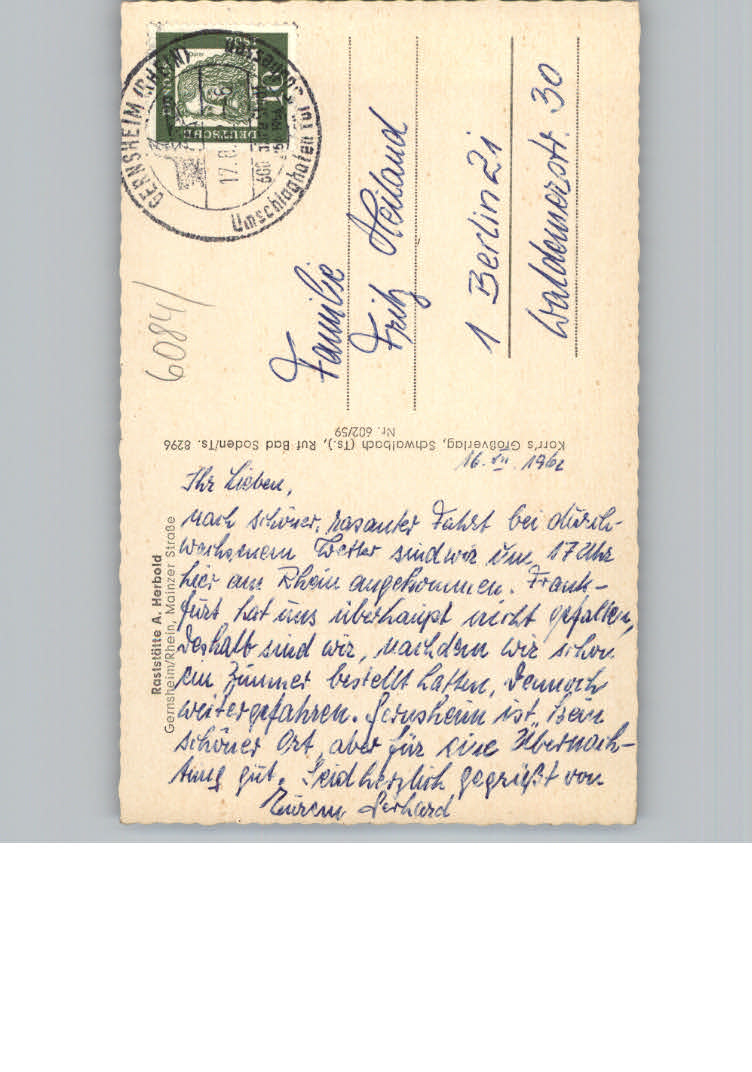 16. VIII. 1962
Ihr Lieben,
nach schöner, rasanter Fahrt bei durch-
wachsenem Wetter sind wir um 17 Uhr
hier am Rhein angekommen. Frank-
furt hat uns überhaupt nicht gefallen,
deshalb sind wir, nachdem wir schon
ein Zimmer bestellt hatten, dennoch
weitergefahren. Gernsheim ist kein
schöner Ort, aber für eine Übernach-
tung gut. Seid herzlich gegrüßt von
Eurem Gerhard
Raststätte A. Herbold
Gernsheim/Rhein, Mainzer Straße
Korr's Großverlag, Schwalbach (Ts.), Ruf Bad Soden/Ts. 8296
Nr. 602/59
Familie
Fritz Heiland
1 Berlin 21
Waldenserstr. 30
6084/
GERNSHEIM (RHEIN)
17.8.
Umschlaghafen
600
DEUTSCHE
10